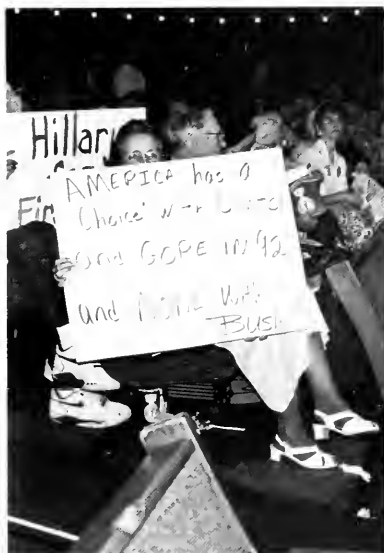 Hillar
Fir
AMERICA has a
Choice' with
and GORE IN '92
and NONE With
BUSH